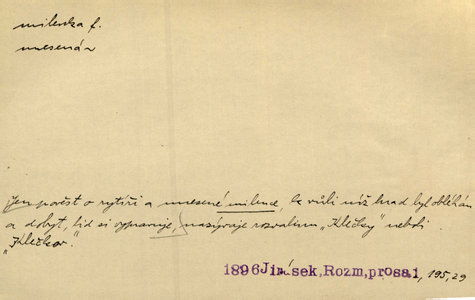 milenka f.
unesená
jen pověst o rytíři a unesené milence, k vůli níž hrad byl obléhán
a dobyt, lid si vypravuje, nazývaje rozvalinu „Klíčky" neboli
„Kličkov."
1896 Jirásek, Rozm, prosa, 1, 195, 29